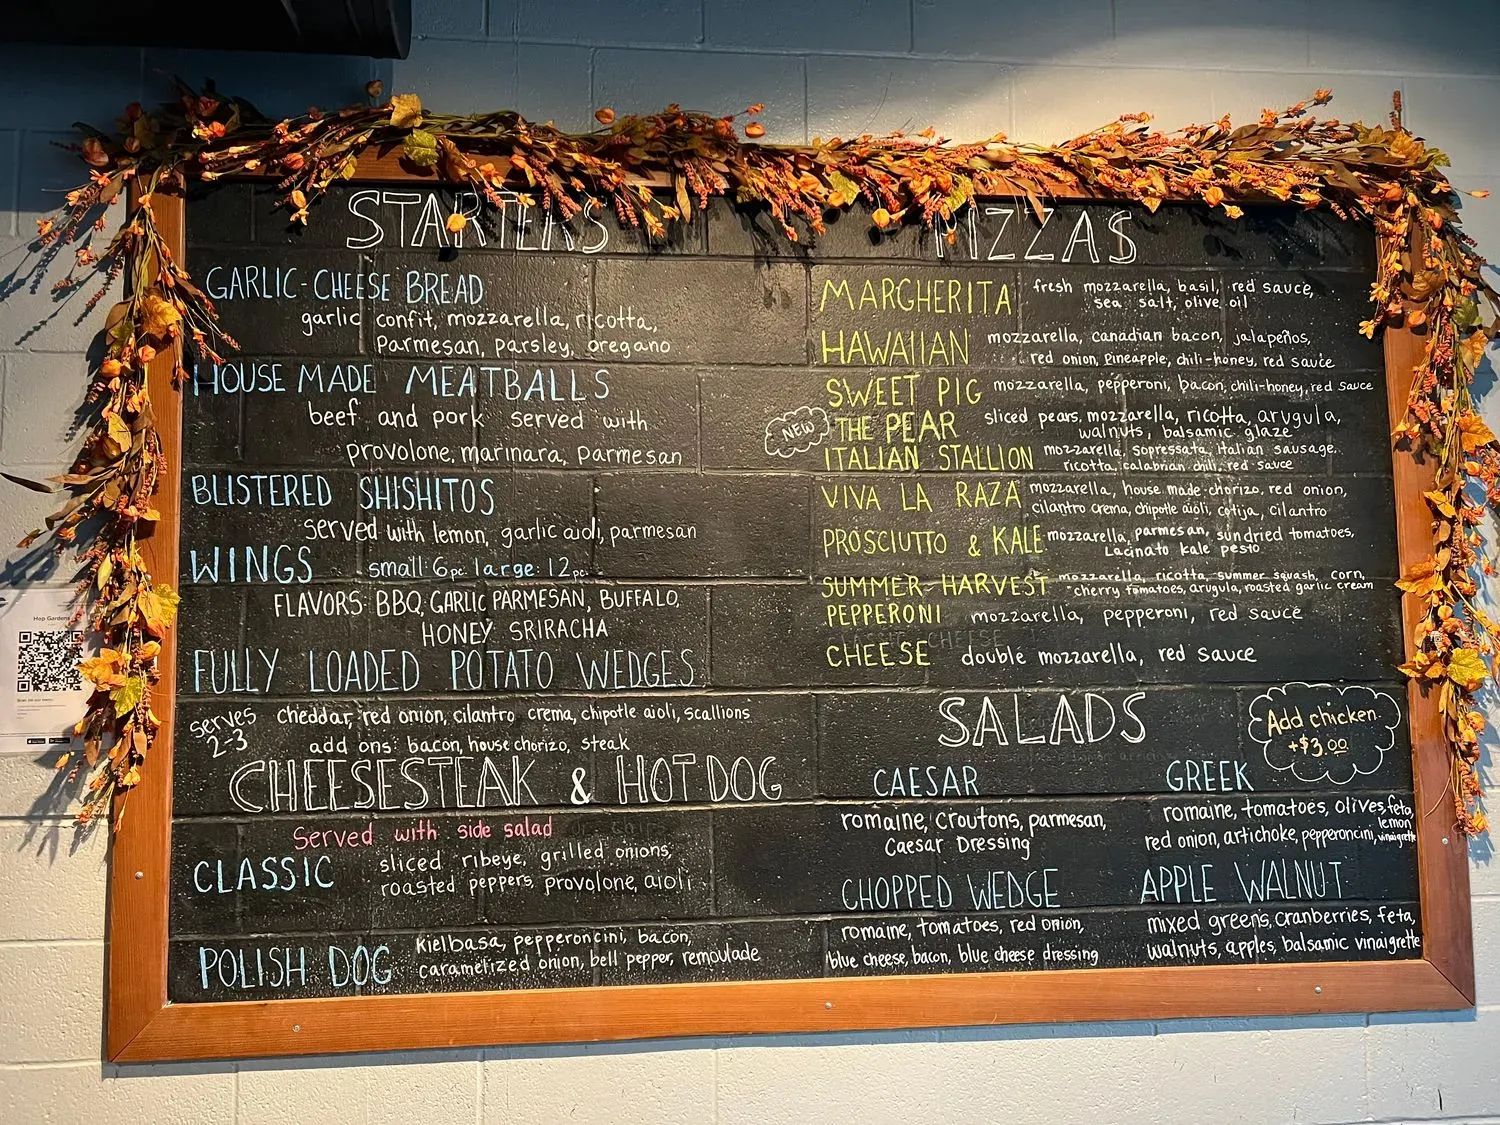 STARTERS
GARLIC-CHEESE BREAD
garlic confit, mozzarella, ricotta,
Parmesan, parsley, oregano
HOUSE MADE MEATBALLS
beef and pork served with
provolone, marinara, Parmesan
BLISTERED SHISHITOS
served with lemon, garlic aioli, parmesan
WINGS small: 6pc large: 12pc
FLAVORS: BBQ, GARLIC PARMESAN, BUFFALO,
HONEY SRIRACHA
FULLY LOADED POTATO WEDGES
serves
2-3
cheddar, red onion, cilantro crema, chipotle aioli, scallions
add ons: bacon, house chorizo, steak
CHEESESTEAK & HOT DOG
Served with side salad
CLASSIC
sliced ribeye, grilled onions,
roasted peppers, provolone, aioli
POLISH DOG
Kielbasa, pepperoncini, bacon,
caramelized onion, bell pepper, remoulade
PIZZAS
MARGHERITA fresh mozzarella, basil, red sauce,
sea salt, olive oil
HAWAIIAN mozzarella, canadian bacon, jalapeños,
red onion, pineapple, chili-honey, red sauce
SWEET PIG mozzarella, pepperoni, bacon, chili-honey, red sauce
NEW
THE PEAR sliced pears, mozzarella, ricotta, arugula,
walnuts, balsamic glaze
ITALIAN STALLION mozzarella, sopressata, italian sausage,
ricotta, calabrian chili, red sauce
VIVA LA RAZA mozzarella, house made chorizo, red onion,
cilantro crema, chipotle aioli, cotija, cilantro
PROSCIUTTO & KALE mozzarella, parmesan, sundried tomatoes,
Lacinato kale pesto
SUMMER-HARVEST mozzarella, ricotta, summer squash, corn,
cherry tomatoes, arugula, roasted garlic cream
PEPPERONI mozzarella, pepperoni, red sauce
CHEESE double mozzarella, red sauce
SALADS
Add chicken
+$3.00
CAESAR
romaine, croutons, parmesan,
Caesar Dressing
GREEK
romaine, tomatoes, olives, feta,
red onion, artichoke, pepperoncini, lemon vinaigrette
CHOPPED WEDGE
romaine, tomatoes, red onion,
blue cheese, bacon, blue cheese dressing
APPLE WALNUT
mixed greens, cranberries, feta,
walnuts, apples, balsamic vinaigrette
Hop Gardens